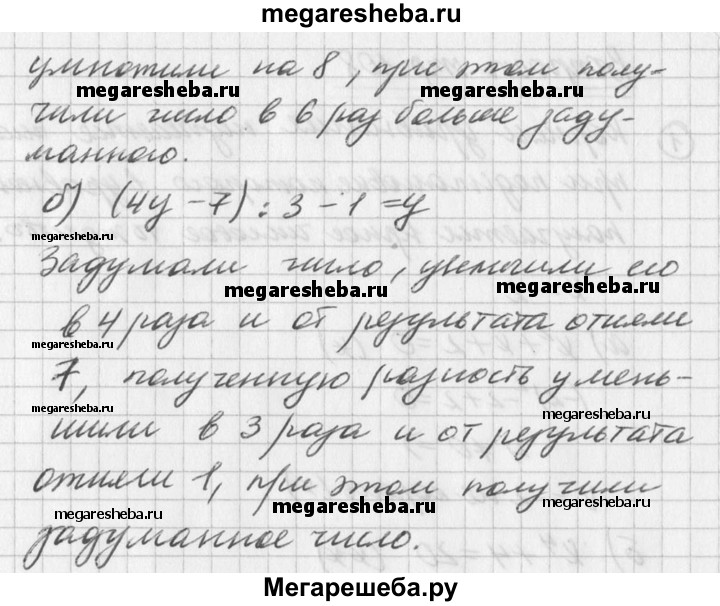 megaresheba.ru
умножили на 8, при этом полу-
megaresheba.ru megaresheba.ru
чили число в 6 раз больше заду-
манного.
б) (4y - 7) : 3 - 1 = y
megaresheba.ru
Задумали число, увеличили его
megaresheba.ru megaresheba.ru
в 4 раза и от результата отняли
megaresheba.ru
7, полученную разность умень-
megaresheba.ru megaresheba.ru
шили в 3 раза и от результата
отняли 1, при этом получили
megaresheba.ru megaresheba.ru
задуманное число.
Мегарешеба.ру